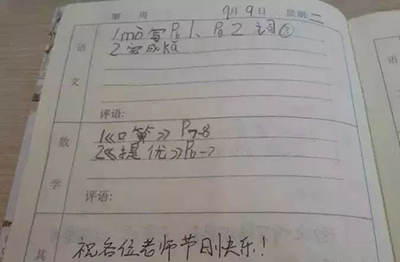 第 周 9月9日 星期:二
语文
1mo写P61、P62词③
2写成ka
评语:
数学
1《口算》P7-8
2《提优》P6-7
评语:
其
祝各位老师节日快乐!